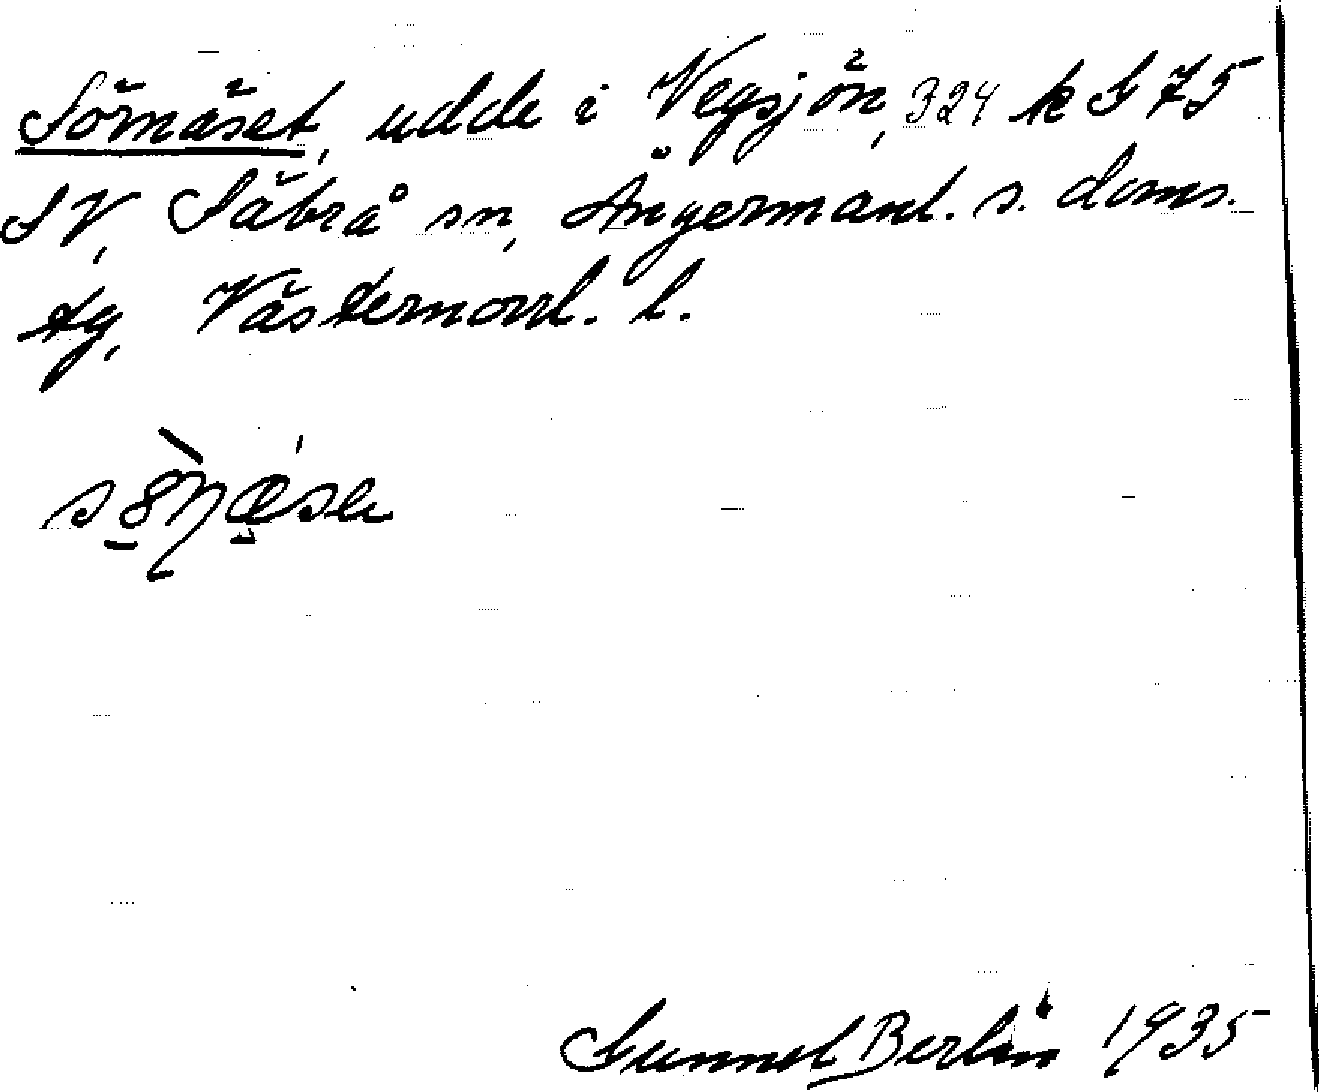 Sörnäset, udde i Vegsjön, 324 k S 75
SV, Säbrå sn, Ångermanl. s. doms.
tg, Västernorrl. l.
Gunnel Berlin 1935